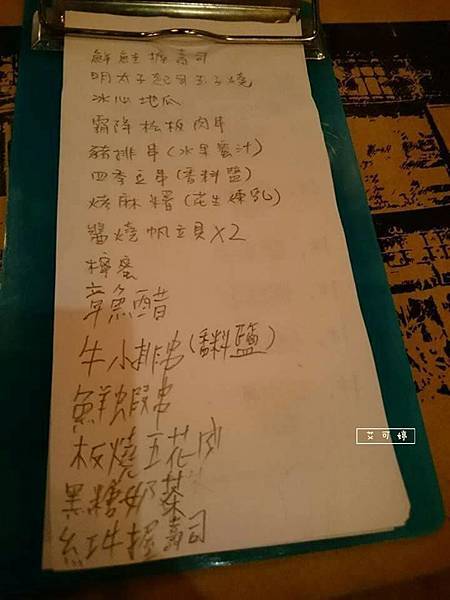 鮮鮭握壽司
明太子起司玉子燒
冰心地瓜
霜降松板肉串
豬排串(水果蜜汁)
四季豆串(香料鹽)
烤麻糬(花生煉乳)
醬燒帆立貝X2
檸蜜
章魚醋
牛小排串(香料鹽)
鮮蝦串
板燒五花肉
黑糖奶茶
紅魽握壽司
艾可婷